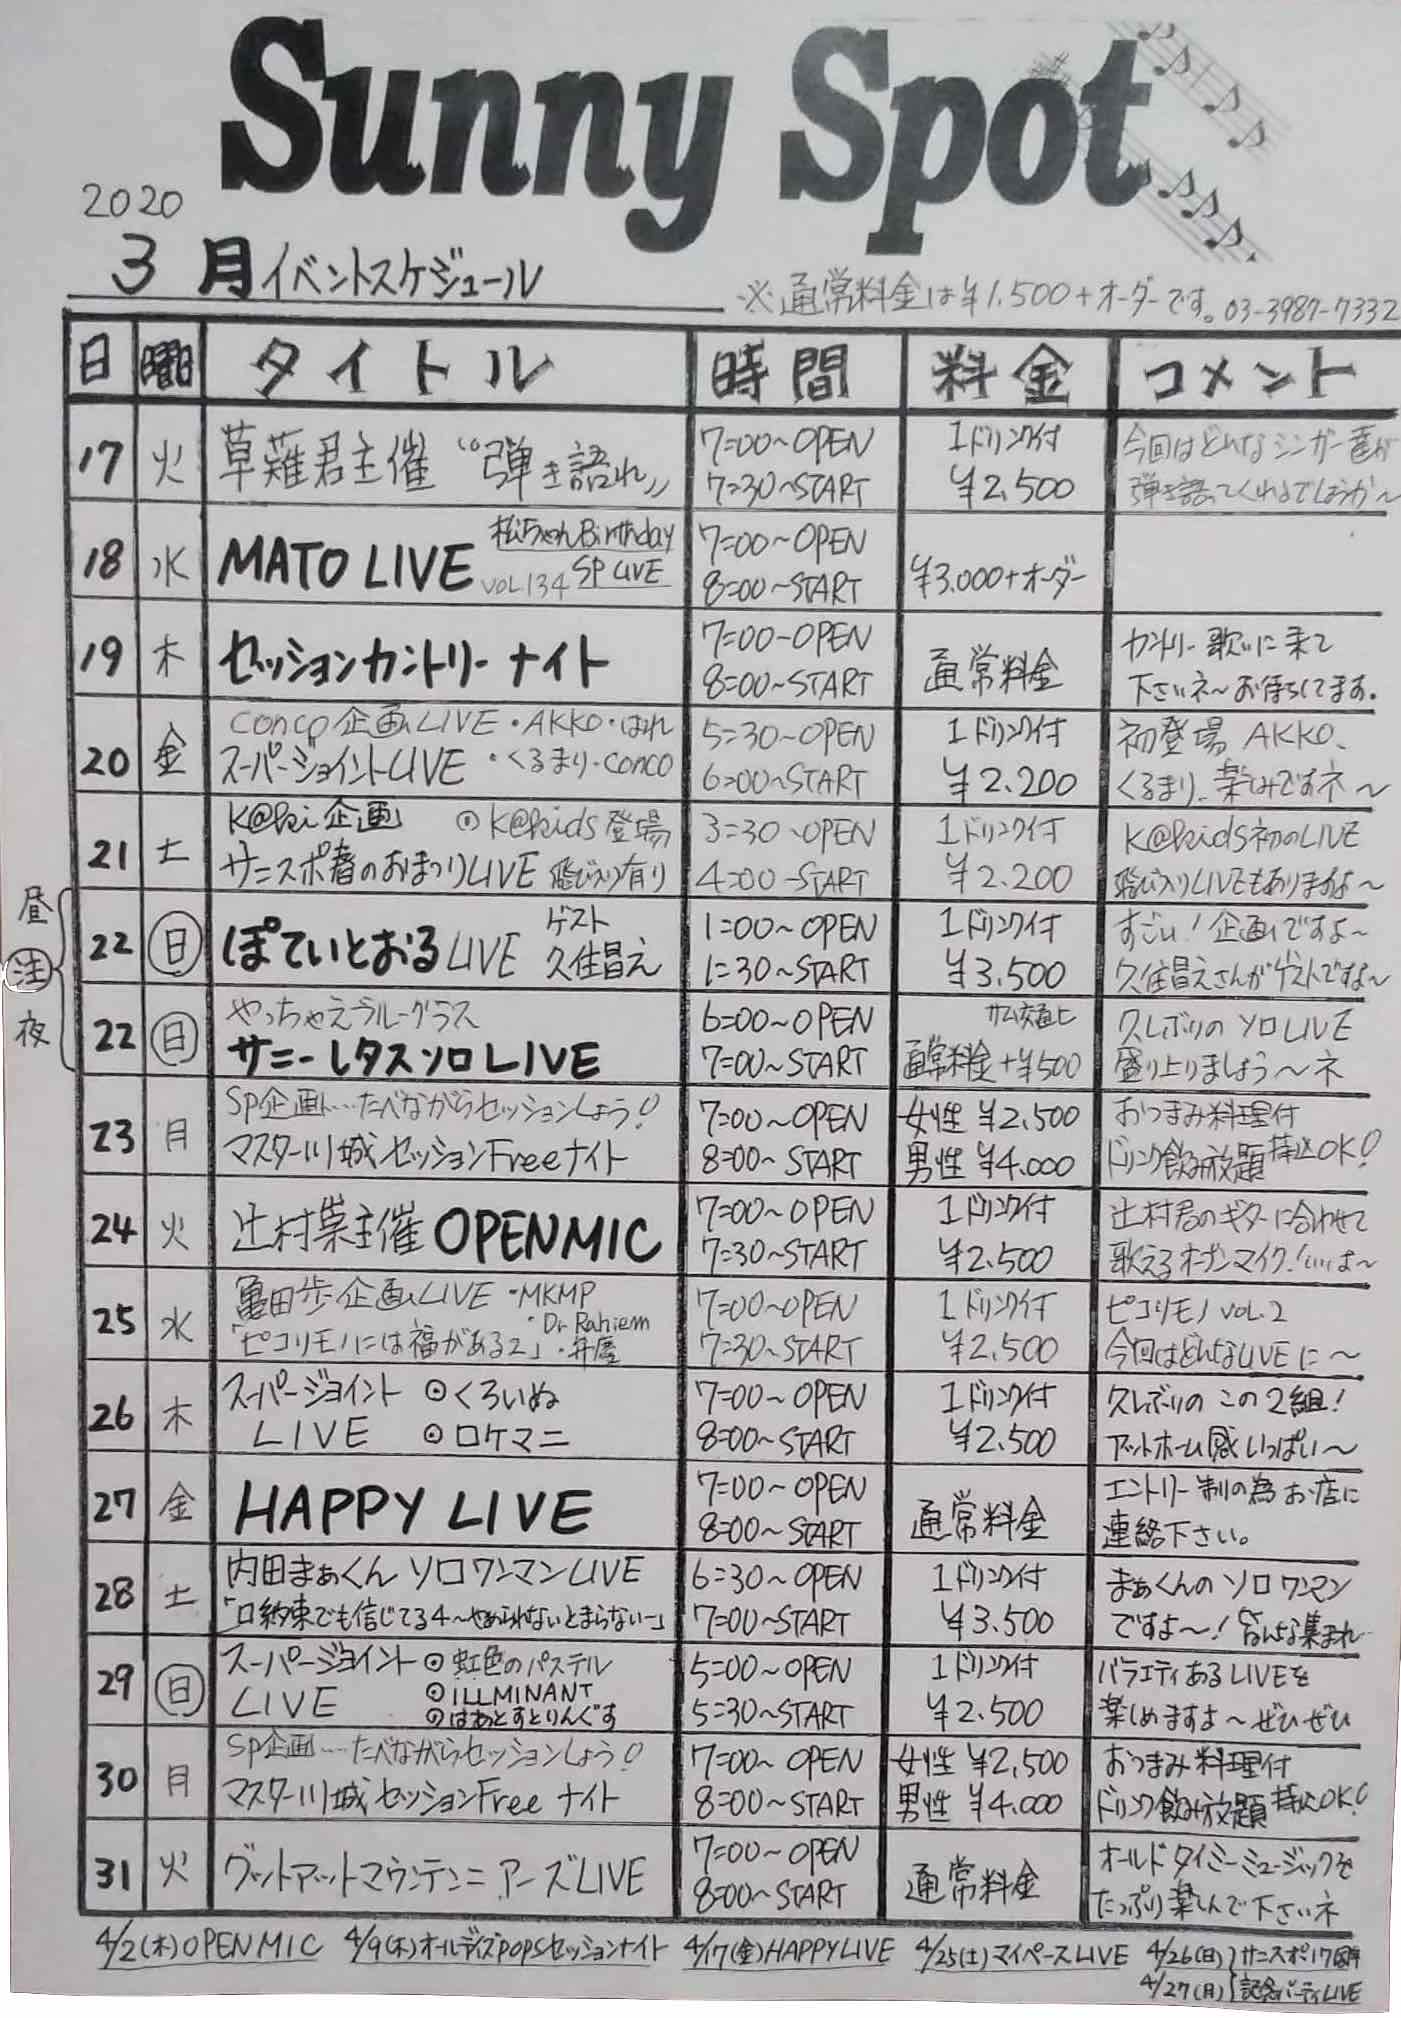 Sunny Spot
2020
3月イベントスケジュール
※通常料金は¥1,500+オーダーです。03-3987-7332
日 曜日 タイトル 時間 料金 コメント
17 火 草薙君主催 "弾き語れ" 7:00~OPEN 1ドリンク付 今回はどんなシンガー達が
7:30~START ¥2,500 弾き語ってくれるでしょうか~
18 水 MATO LIVE 松ちゃんBirthday 7:00~OPEN ¥3,000+オーダー
VOL134 SP LIVE 8:00~START
19 木 セッションカントリーナイト 7:00-OPEN 通常料金 カントリー歌いに来て
8:00~START 下さいネ~お待ちしてます。
20 金 conco企画LIVE・AKKO・はれ 5:30~OPEN 1ドリンク付 初登場 AKKO、
スーパージョイントLIVE ・くるまり・conco 6:00~START ¥2,200 くるまり、楽しみですネ~
21 土 K@ki企画 ⊙K@kids登場 3:30~OPEN 1ドリンク付 K@kids初のLIVE
サニスポ春のおまつりLIVE 飛び入り有り 4:00-START ¥2,200 飛び入りLIVEもありますよ~
昼
注
夜
22 日 ぽていとおるLIVE ゲスト 1:00~OPEN 1ドリンク付 すごい!企画ですよ~
久住昌え 1:30~START ¥3,500 久住昌えさんがゲストですよ~
22 日 やっちゃえラルーグラス 6:00~OPEN 久しぶりのソロLIVE
サニーレタスソロLIVE 7:00~START 通常料金+¥500 盛り上りましょう~ネ
23 月 SP企画……たべながらセッションしよう! 7:00~OPEN 女性 ¥2,500 おつまみ料理付
マスター川城セッションFreeナイト 8:00~START 男性 ¥4,000 ドリンク飲み放題 持込OK!
24 火 辻村 主催 OPEN MIC 7:00~OPEN 1ドリンク付 辻村君のギターに合わせて
7:30~START ¥2,500 歌えるオープンマイク!…よ~
25 水 亀田歩企画LIVE・MKMP 7:00~OPEN 1ドリンク付 ピコリモノVOL.2
・Dr Rahiem
「ピコリモノには福がある2」・弁慶 7:30~START ¥2,500 今回はどんなLIVEに~
26 木 スーパージョイント ⊙くろいぬ 7:00~OPEN 1ドリンク付 久しぶりのこの2組!
LIVE ⊙ロケマニ 8:00~START ¥2,500 アットホーム感いっぱい~
27 金 HAPPY LIVE 7:00~OPEN 通常料金 エントリー制の為お店に
8:00~START 連絡下さい。
28 土 内田まぁくん ソロワンマンLIVE 6:30~OPEN 1ドリンク付 まぁくんのソロワンマン
「口約束でも信じてる4~やめられないとまらないー」 7:00~START ¥3,500 ですよ~!みんな集まれ
29 日 スーパージョイント ⊙虹色のパステル 5:00~OPEN 1ドリンク付 バラエティあるLIVEを
LIVE ⊙ILLMINANT 5:30~START ¥2,500 楽しめますよ~ぜひぜひ
⊙はあとすとりんぐす
30 月 SP企画……たべながらセッションしよう! 7:00~OPEN 女性 ¥2,500 おつまみ料理付
マスター川城セッションFreeナイト 8:00~START 男性 ¥4,000 ドリンク飲み放題 持込OK!
31 火 グットアットマウンテンニアーズLIVE 7:00~OPEN 通常料金 オールドタイミーミュージックを
8:00~START たっぷり楽しんで下さいネ
4/2(木)OPEN MIC 4/9(木)オールディズPOPSセッションナイト 4/17(金)HAPPY LIVE 4/25(土)マイペースLIVE 4/26(日) サニスポ17周年
4/27(月) 記念パーティLIVE